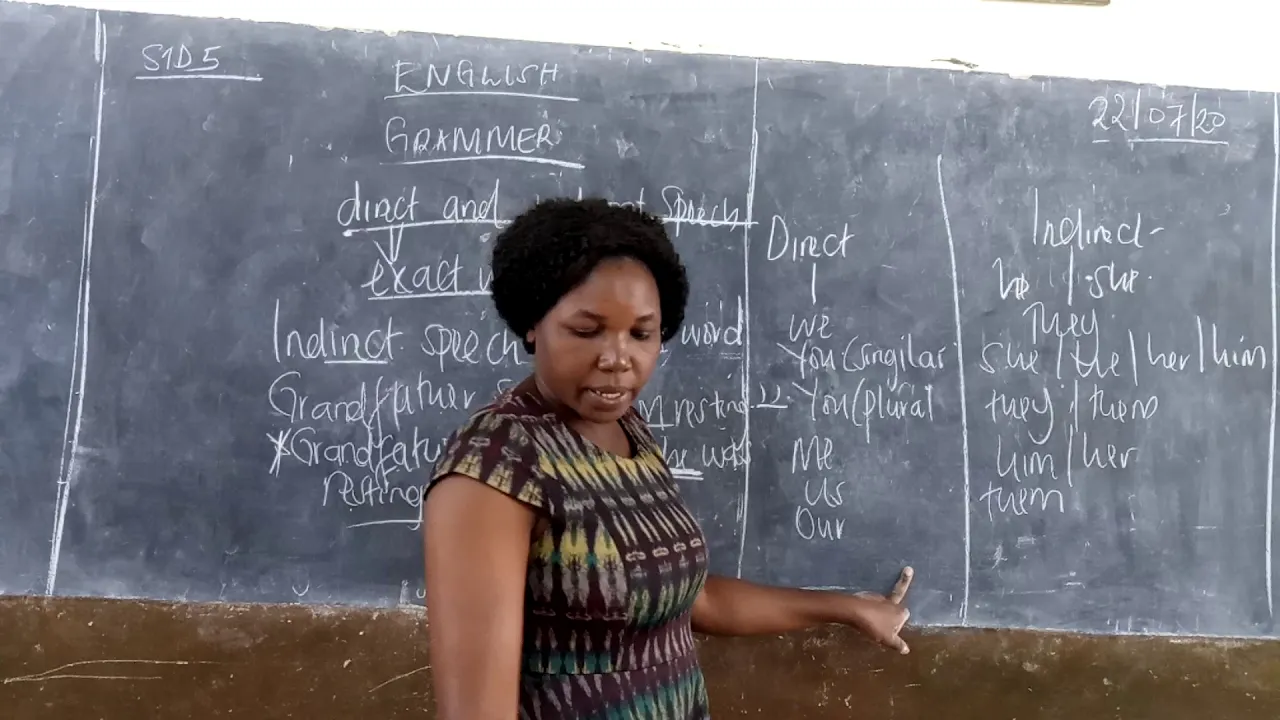 S1D5
22/07/20
ENGLISH
GRAMMER
direct and Speech
exact
Indirect speech word
Grandfather resting"
was
resting
Direct
I
We
You (singilar
You (plural
Me
Us
Our
Indirect
he | she.
They
She | he | her | him
they | them
him | her
them